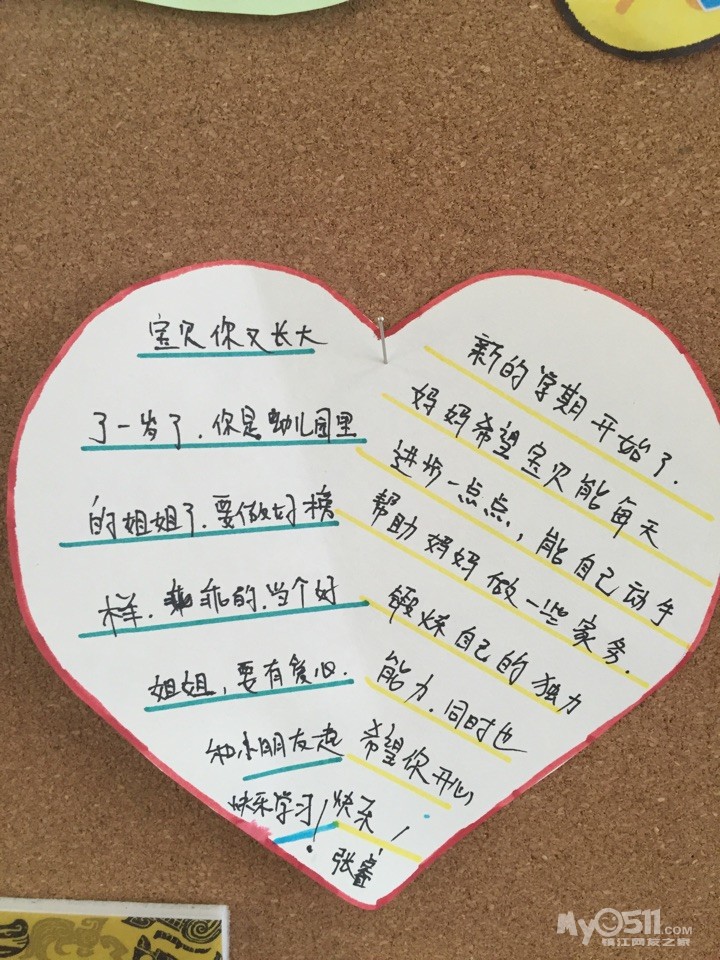 宝贝你又长大
了一岁了.你是幼儿园里
的姐姐了.要做好榜
样.乖乖的.当个好
姐姐,要有爱心.
和小朋友起
快乐学习!
新的学期开始了.
妈妈希望宝贝能每天
进步一点点,能自己动手
帮助妈妈做一些家务.
锻炼自己的独力
能力.同时也
希望你开心
快乐!
张睿
MyO511.COM
镇江网友之家